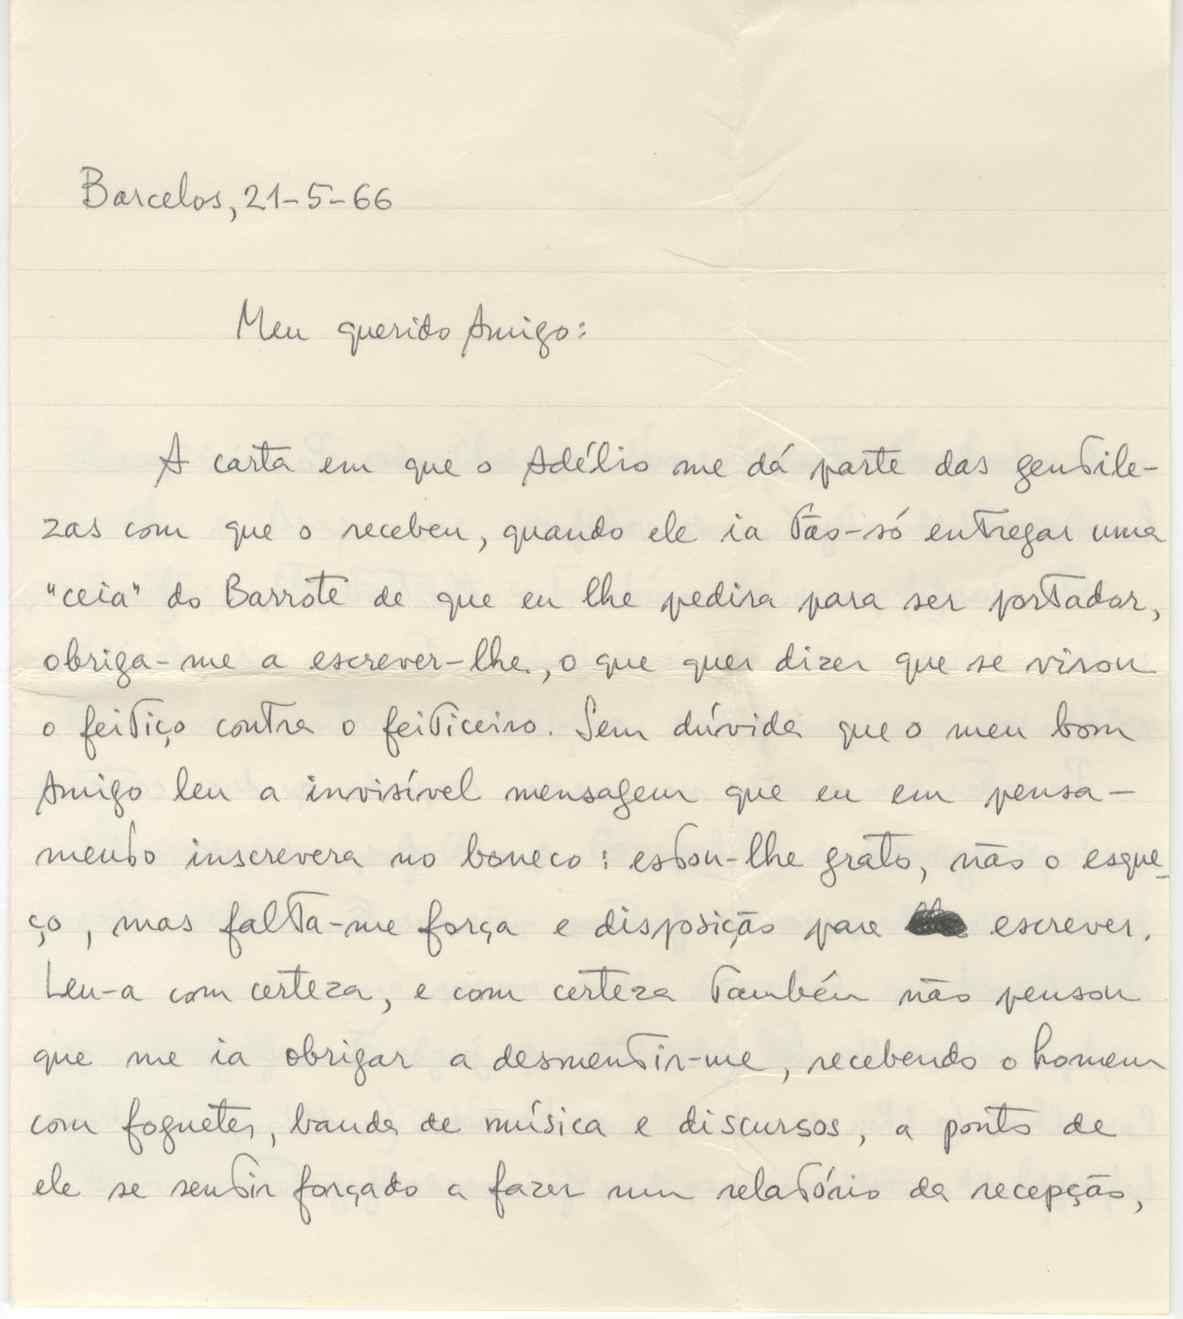 Barcelos, 21-5-66
Meu querido Amigo:
A carta em que o Adélio me dá parte das gentile-
zas com que o recebeu, quando ele ia tão-só entregar uma
"ceia" do Barrote de que eu lhe pedira para ser portador,
obriga-me a escrever-lhe, o que quer dizer que se virou
o feitiço contra o feiticeiro. Sem dúvida que o meu bom
Amigo leu a invisível mensagem que eu em pensa-
mento inscrevera no boneco: estou-lhe grato, não o esque-
ço, mas falta-me força e disposição para escrever.
Leu-a com certeza, e com certeza também não pensou
que me ia obrigar a desmentir-me, recebendo o homem
com foguetes, banda de música e discursos, a ponto de
ele se sentir forçado a fazer um relatório da recepção,